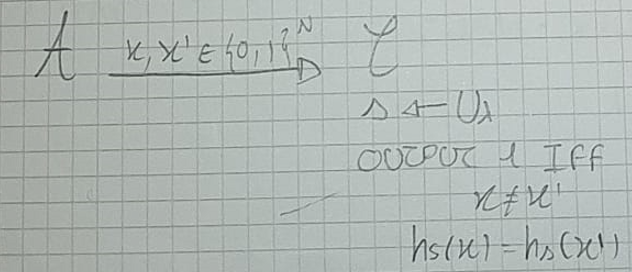 A x, x' ∈ {0,1}^N C
s ← U_λ
OUTPUT 1 IFF
x ≠ x'
h_s(x) = h_s(x')